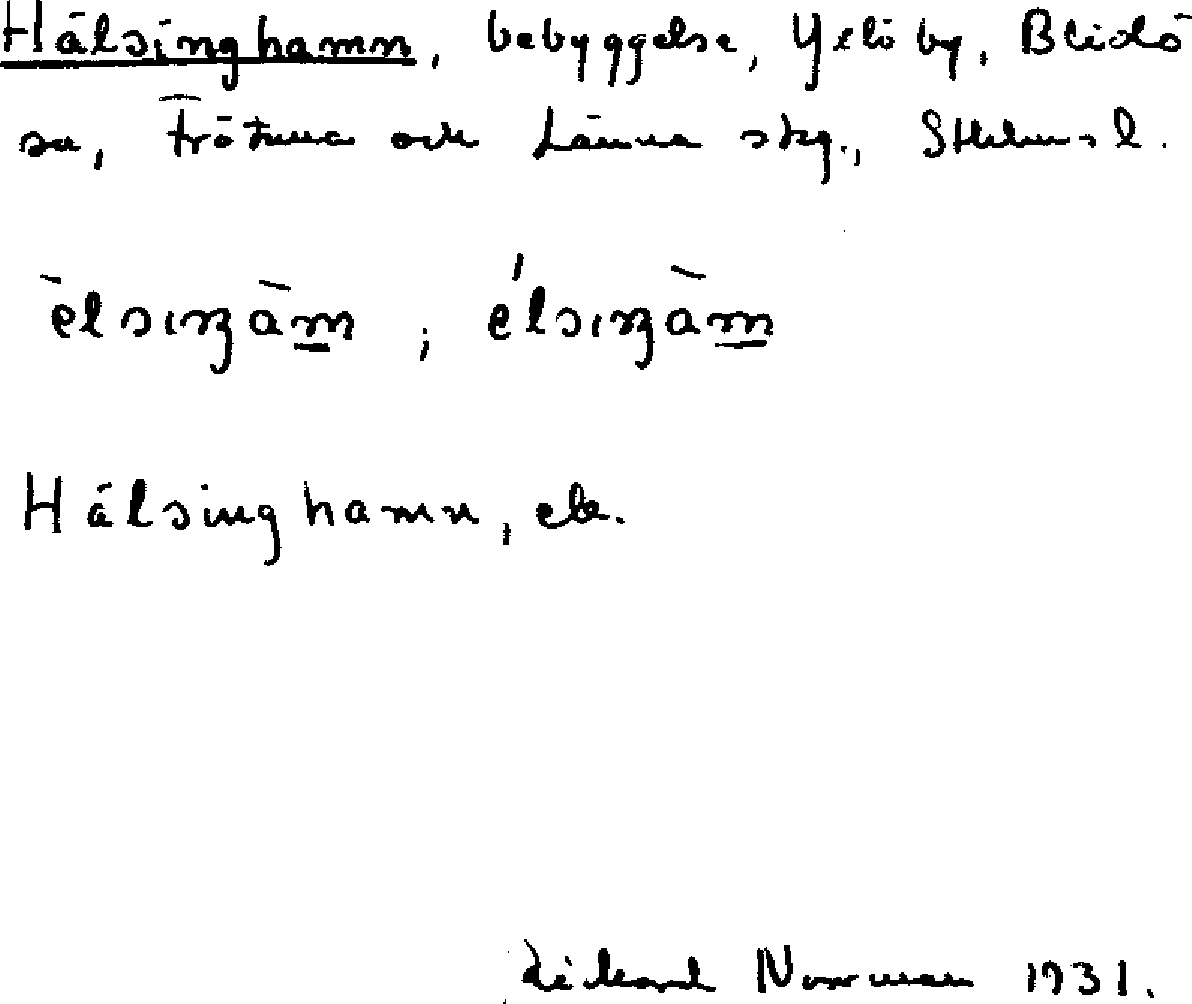 Hälsinghamn, bebyggelse, Yxlö by, Blidö
sn, Frötuna och Länna skg., Sthlms l.
èlsıŋàm ; élsıŋàm
Hälsinghamn, etc.
Rickard Norrman 1931.